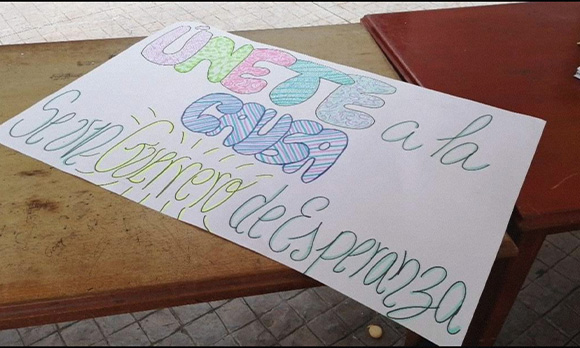 ÚNETE a la
CAUSA
Se one Guerrero de Esperanza